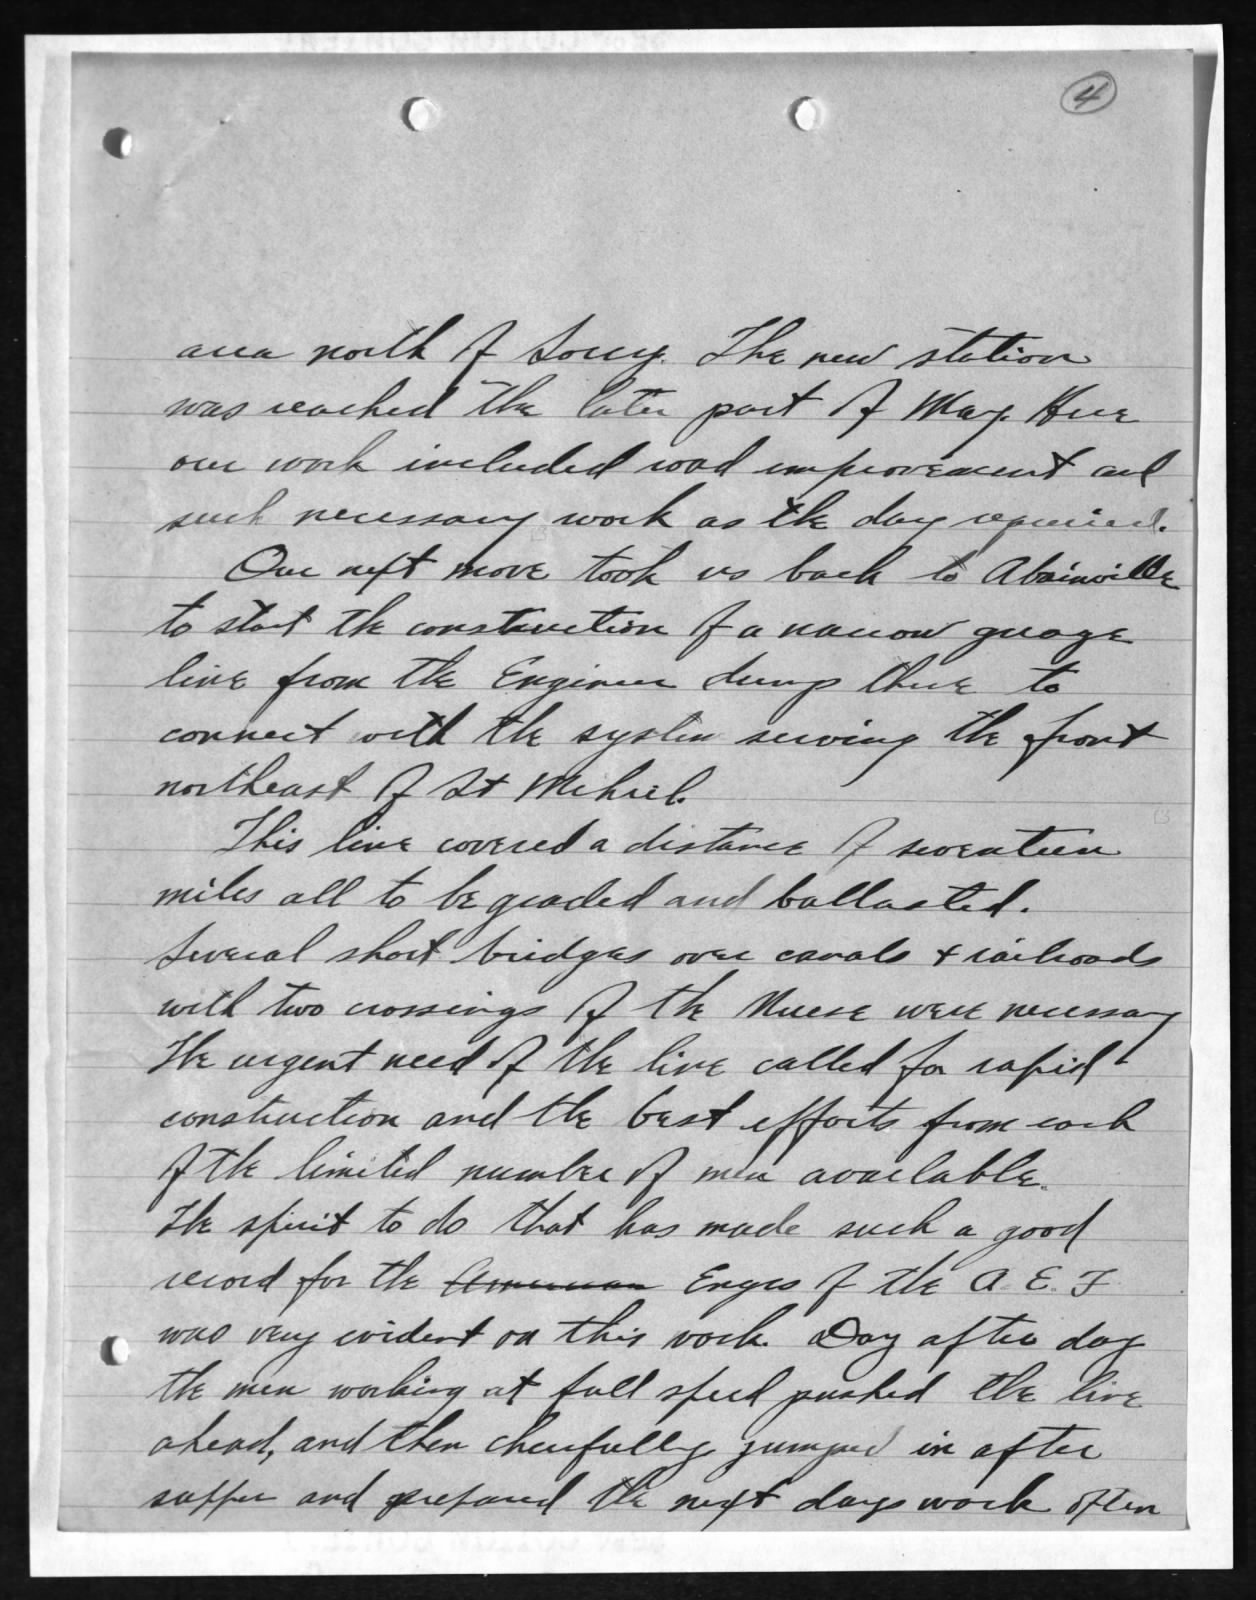 4
area north of Sorcy. The new station
was reached the later part of May. Here
our work included road improvement and
such necessary work as the day required.
Our next move took us back to Abainville
to start the construction of a narrow guage
line from the Engineer dump there to
connect with the system serving the front
northeast of St Mihiel.
This line covered a distance of seventeen
miles all to be graded and ballasted.
Several short bridges over canals + railroads
with two crossings of the Meuse were necessary
The urgent need of the line called for rapid
construction and the best efforts from each
of the limited number of men available.
The spirit to do that has made such a good
record for the American Engrs of the A. E. F
was very evident on this work. Day after day
the men working at full speed pushed the line
ahead, and then cheerfully jumped in after
supper and prepared the next days work often